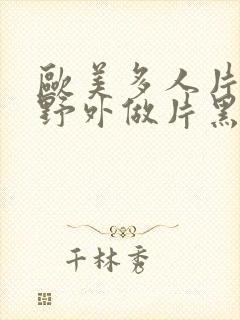 歐美多人片
野外做片黑
千林秀